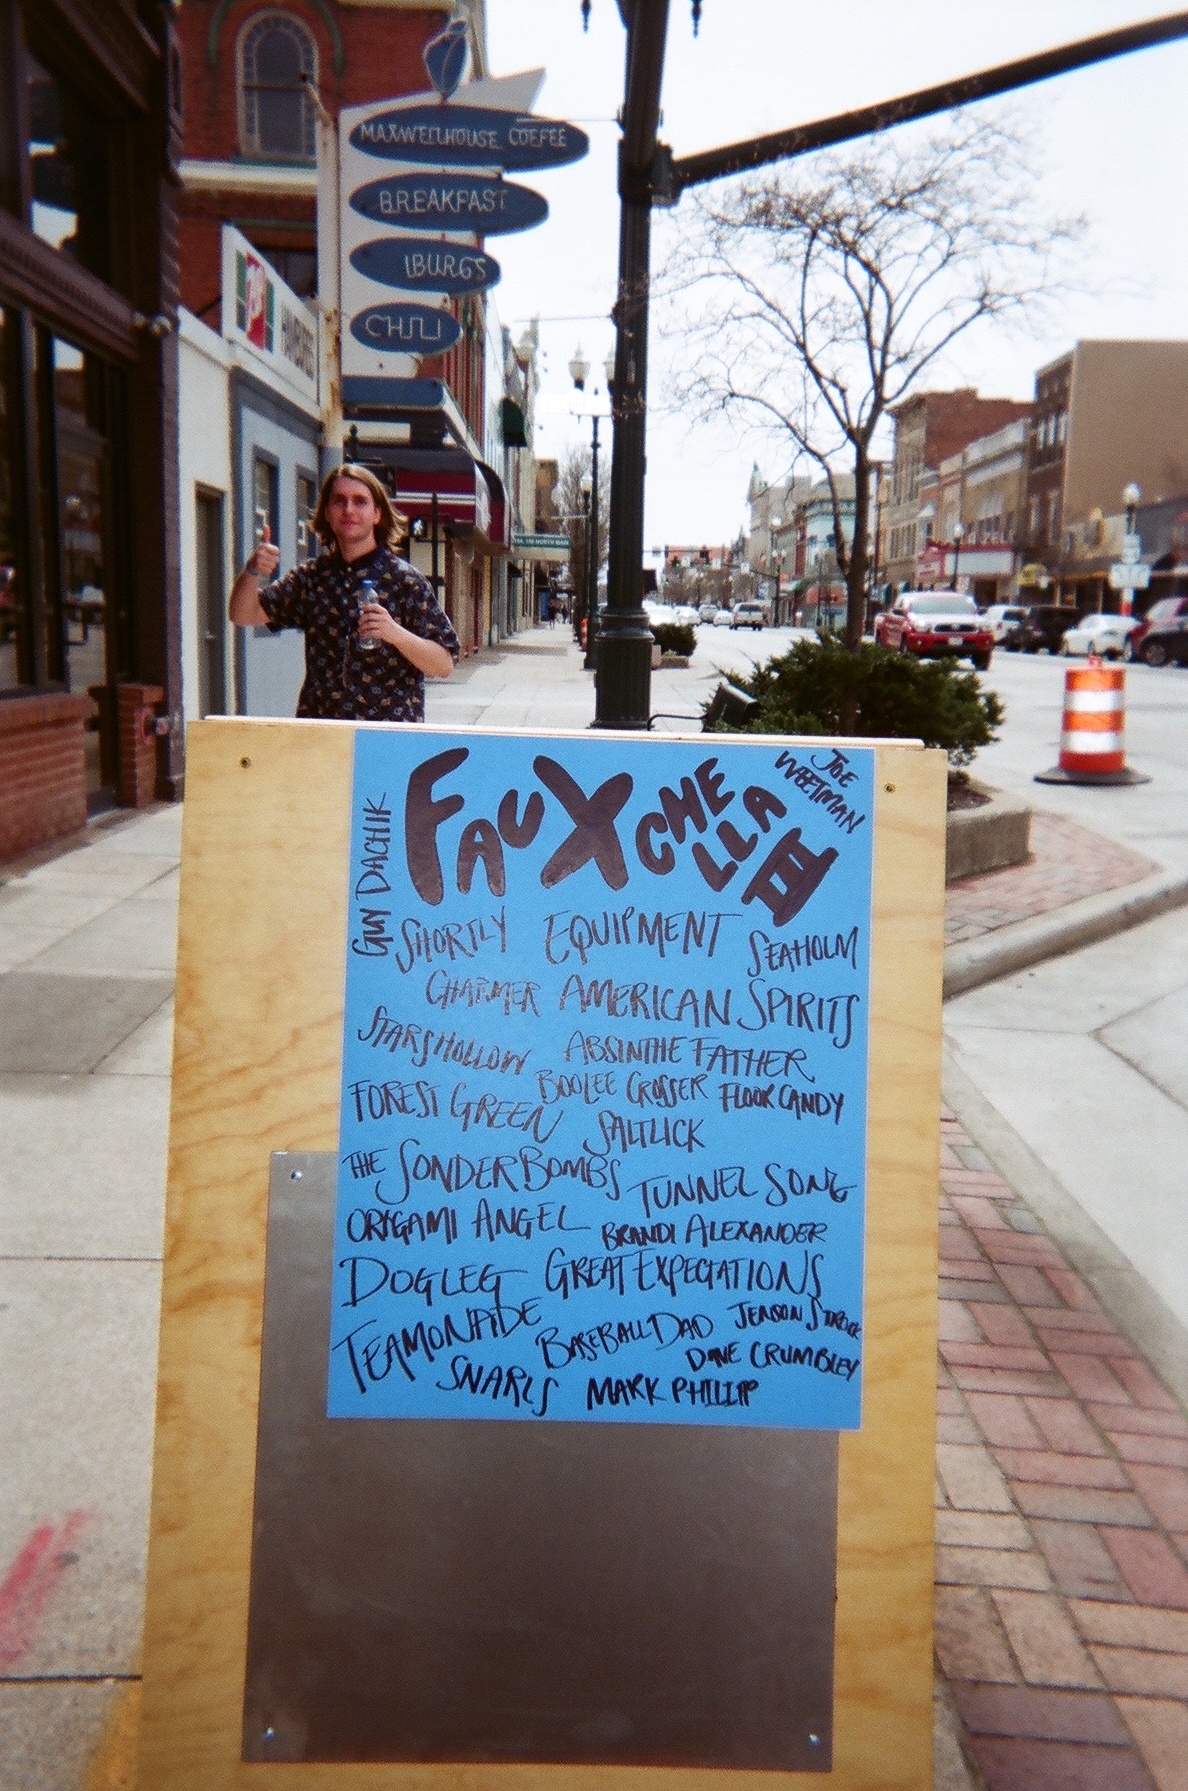 MAXWELLHOUSE COFFEE
BREAKFAST
BURGS
CHILI
FAUXCHELLA III
JOE WEETMAN
GUY DACHIK
SHORTLY EQUIPMENT SEAHOLM
CHARMER AMERICAN SPIRITS
STARS HOLLOW ABSINTHE FATHER
FOREST GREEN BOOLEE CROSSER FLOOR CANDY
SALTLICK
THE SONDER BOMBS TUNNEL SONG
ORIGAMI ANGEL BRANDI ALEXANDER
DOGLEG GREAT EXPECTATIONS
TEAMONADE BASEBALL DAD JENSON STROCK
SNARLS MARK PHILIPP DAVE CRUMBLEY